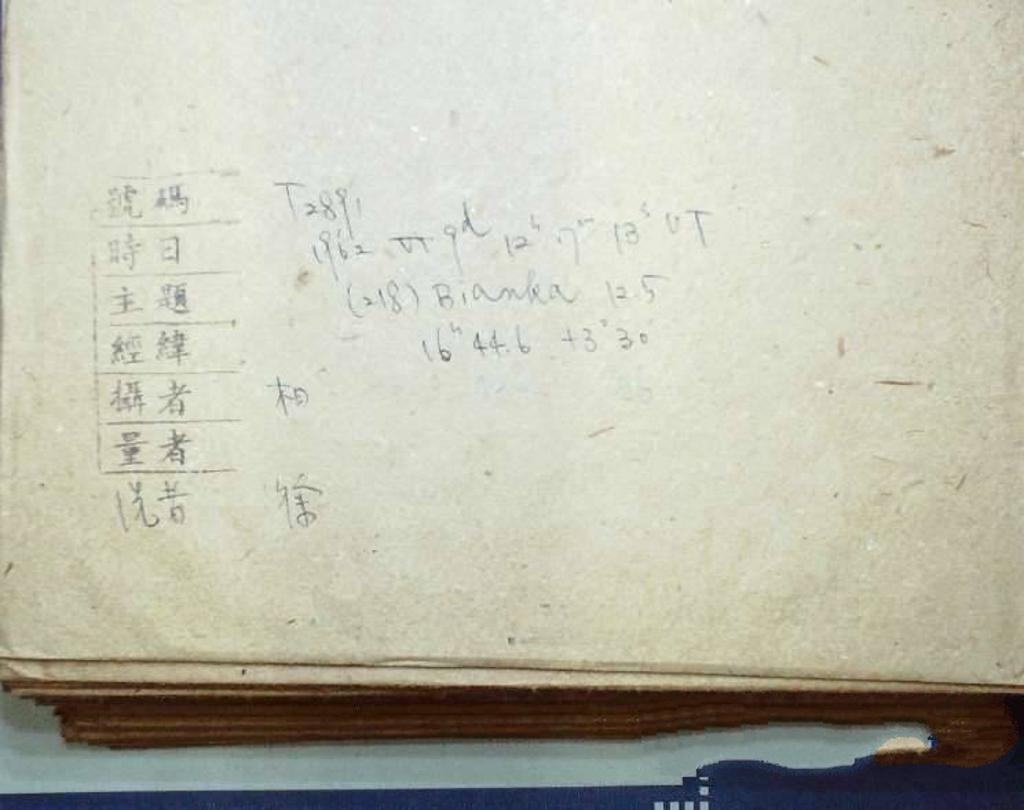 號碼 T2891
時日 1962 VI 9d 12h 17m 13s UT
主題 (218) Bianka 12.5
經緯 16h 44.6 +3° 30'
攝者 相
量者
洗者 徐